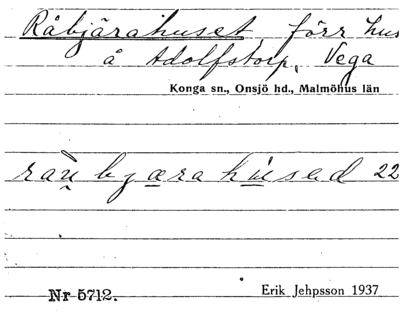 Råbjärahuset, förr hus
å Adolfstorp, Vega
Konga sn., Onsjö hd., Malmöhus län
22
Nr 5712.
Erik Jehpsson 1937